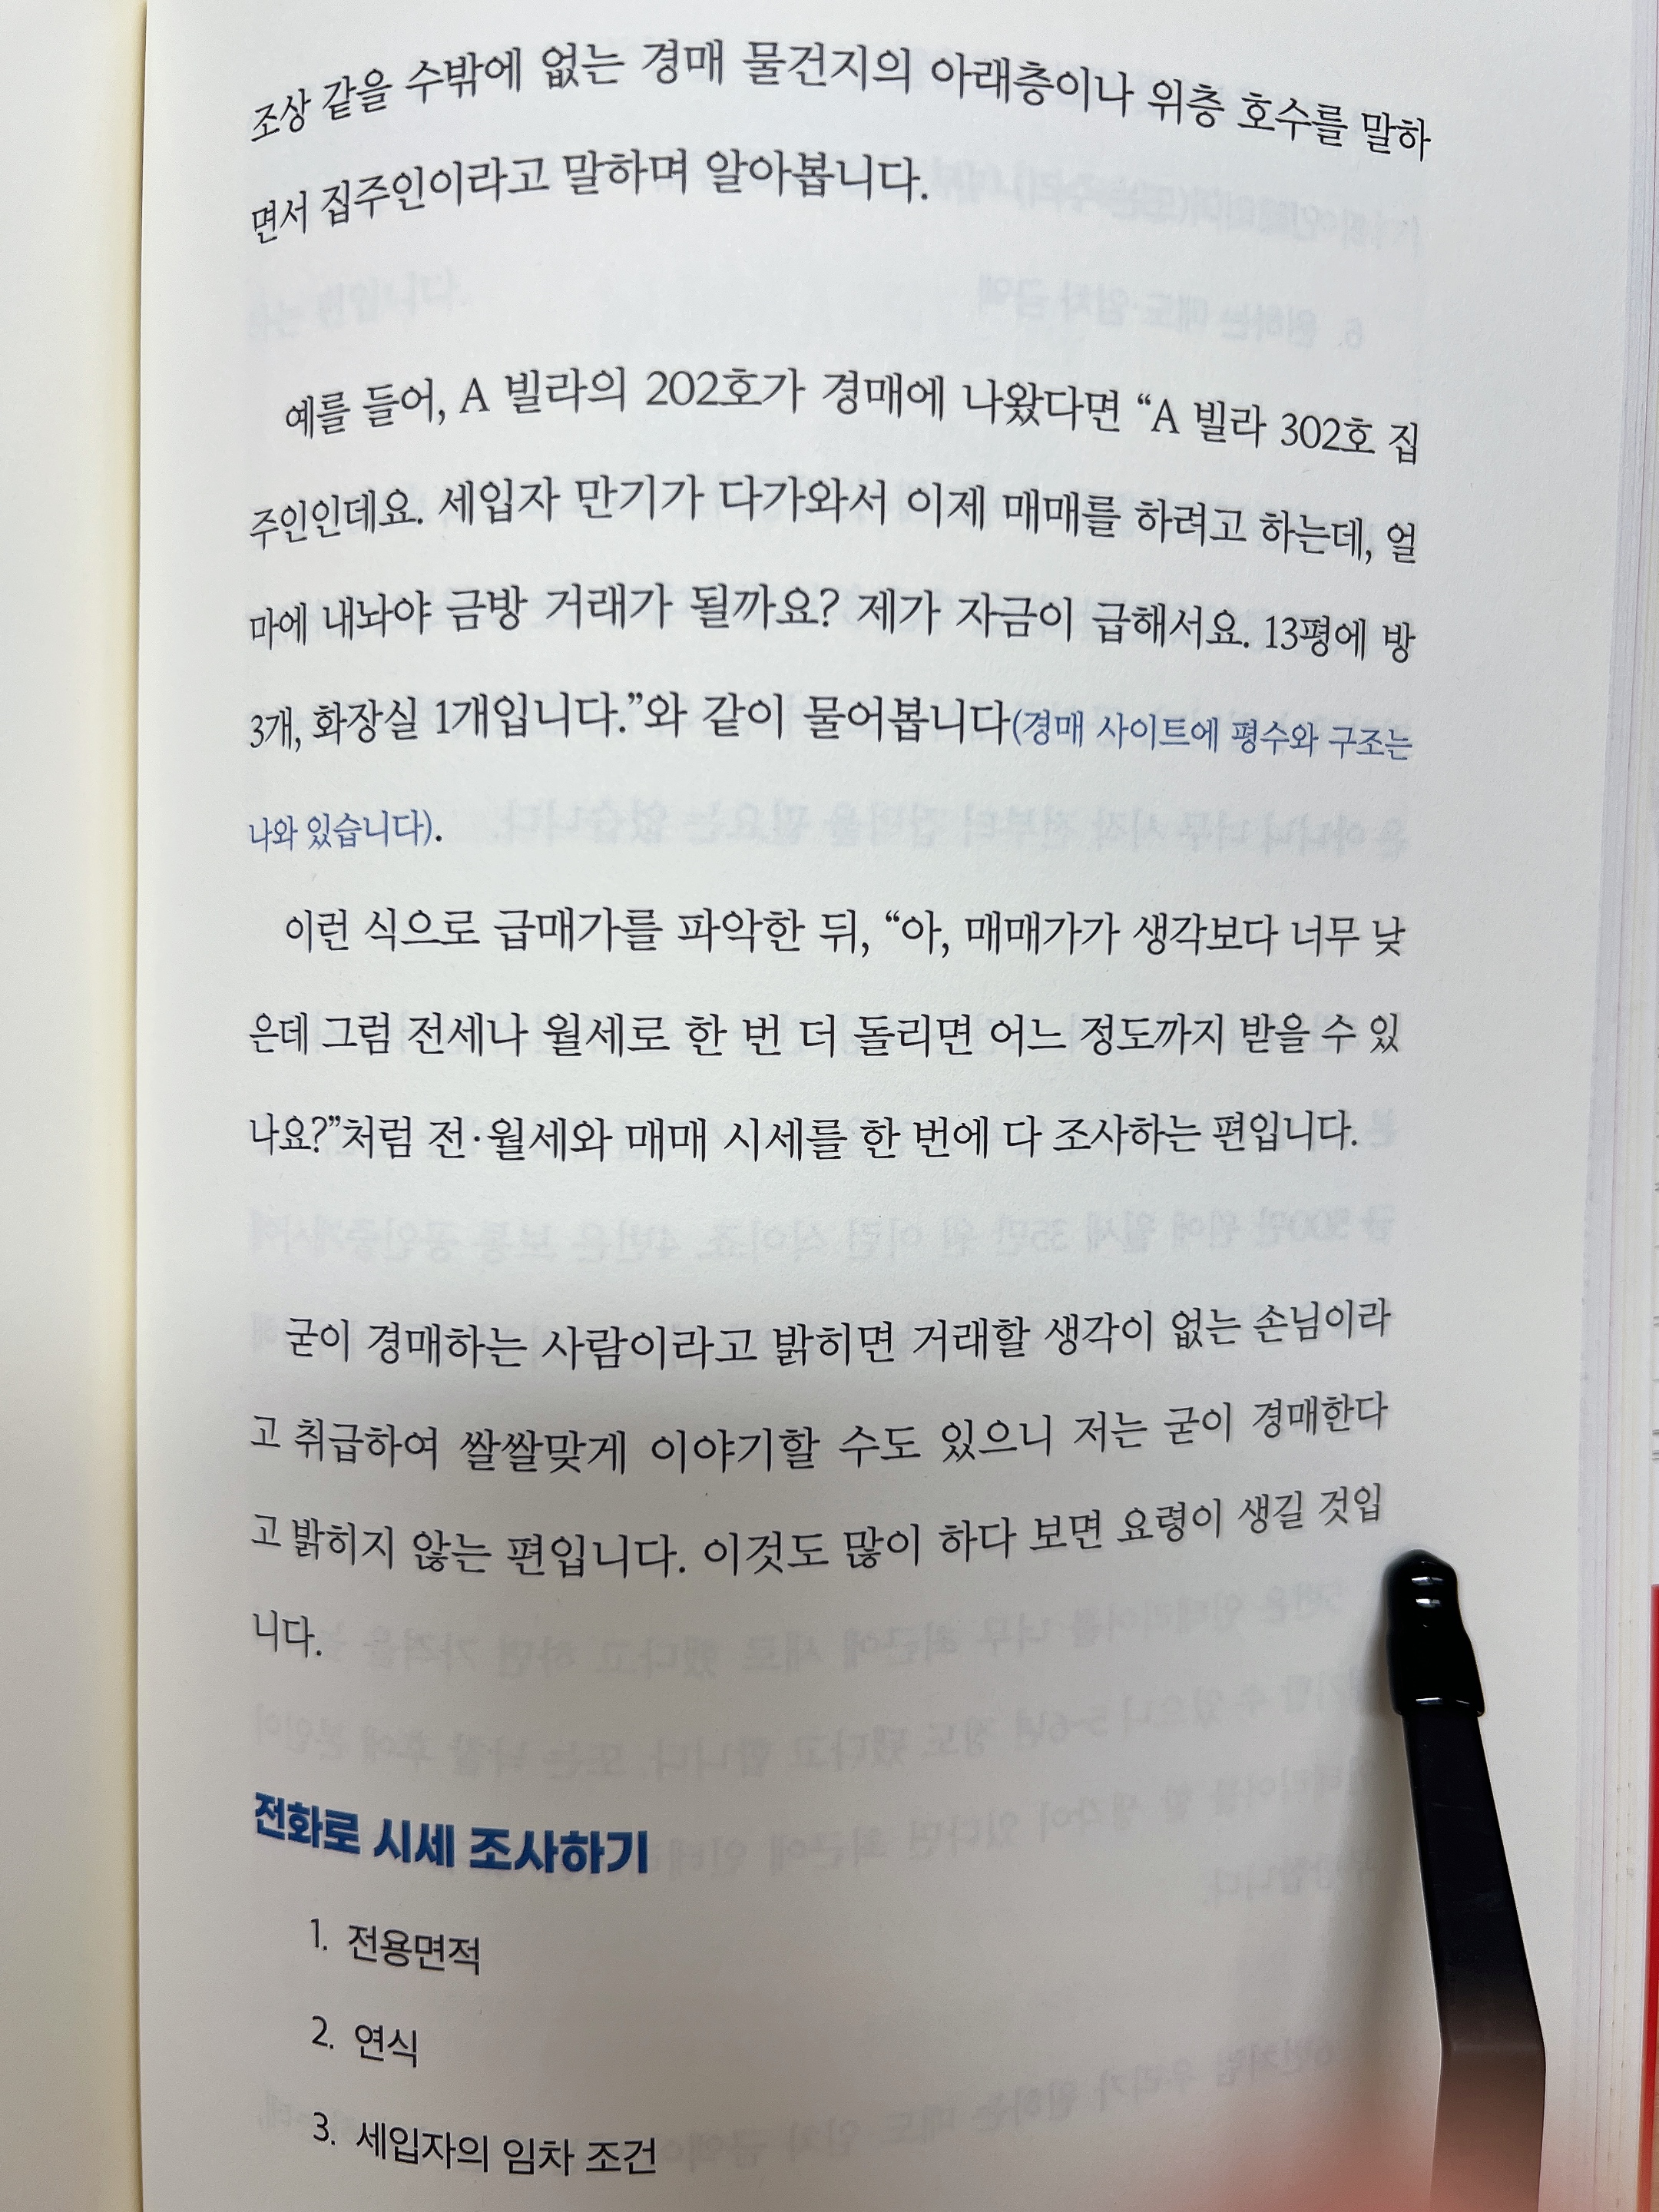 조상 같을 수밖에 없는 경매 물건지의 아래층이나 위층 호수를 말하
면서 집주인이라고 말하며 알아봅니다.
예를 들어, A 빌라의 202호가 경매에 나왔다면 “A 빌라 302호 집
주인인데요. 세입자 만기가 다가와서 이제 매매를 하려고 하는데, 얼
마에 내놔야 금방 거래가 될까요? 제가 자금이 급해서요. 13평에 방
3개, 화장실 1개입니다.”와 같이 물어봅니다(경매 사이트에 평수와 구조는
나와 있습니다).
이런 식으로 급매가를 파악한 뒤, “아, 매매가가 생각보다 너무 낮
은데 그럼 전세나 월세로 한 번 더 돌리면 어느 정도까지 받을 수 있
나요?”처럼 전·월세와 매매 시세를 한 번에 다 조사하는 편입니다.
굳이 경매하는 사람이라고 밝히면 거래할 생각이 없는 손님이라
고 취급하여 쌀쌀맞게 이야기할 수도 있으니 저는 굳이 경매한다
고 밝히지 않는 편입니다. 이것도 많이 하다 보면 요령이 생길 것입
니다.
전화로 시세 조사하기
1. 전용면적
2. 연식
3. 세입자의 임차 조건